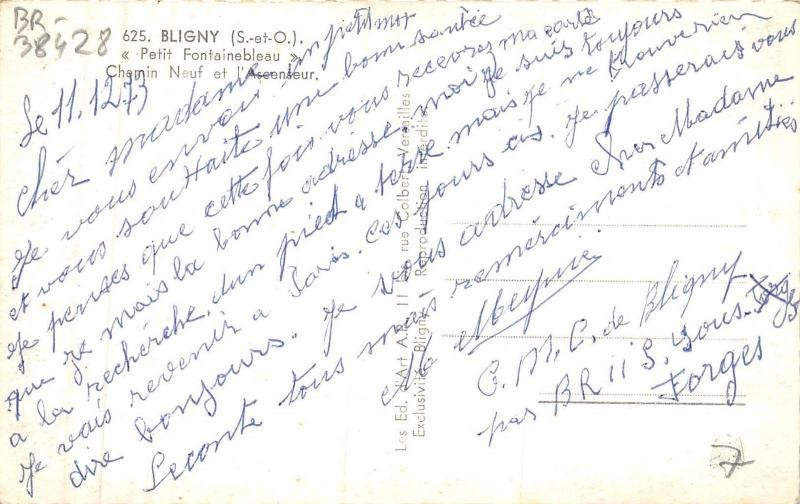 BR-
38428
625. BLIGNY (S.-et-O.).
« Petit Fontainebleau »
Chemin Neuf et l'Ascenseur.
Le 11.12.73
Cher madame
Je vous envoi un petit mot
et vous souhaite une bonne santée
Je penses que cette fois vous recevres ma carte
que je mais la bonne adresse moi je suis toujours
a la recherche d'un pied a terre mais je ne trouve rien
Je vais revenir a Paris. Ces jours ci. Je passerais vous
dire bonjours. Je vous adresse cher Madame
Leconte tous mais remerciments et amitiés
Meynie
C. M. C. de Bligny
par BRIIS. sous-Forges
Forges
Les Ed. d'Art A. L. 11 rue Colbert Versailles
Exclusivité Bligny - Reproduction interdite